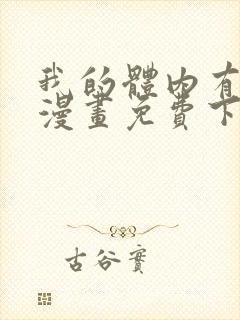 我的體內有
漫畫免費下
古谷實